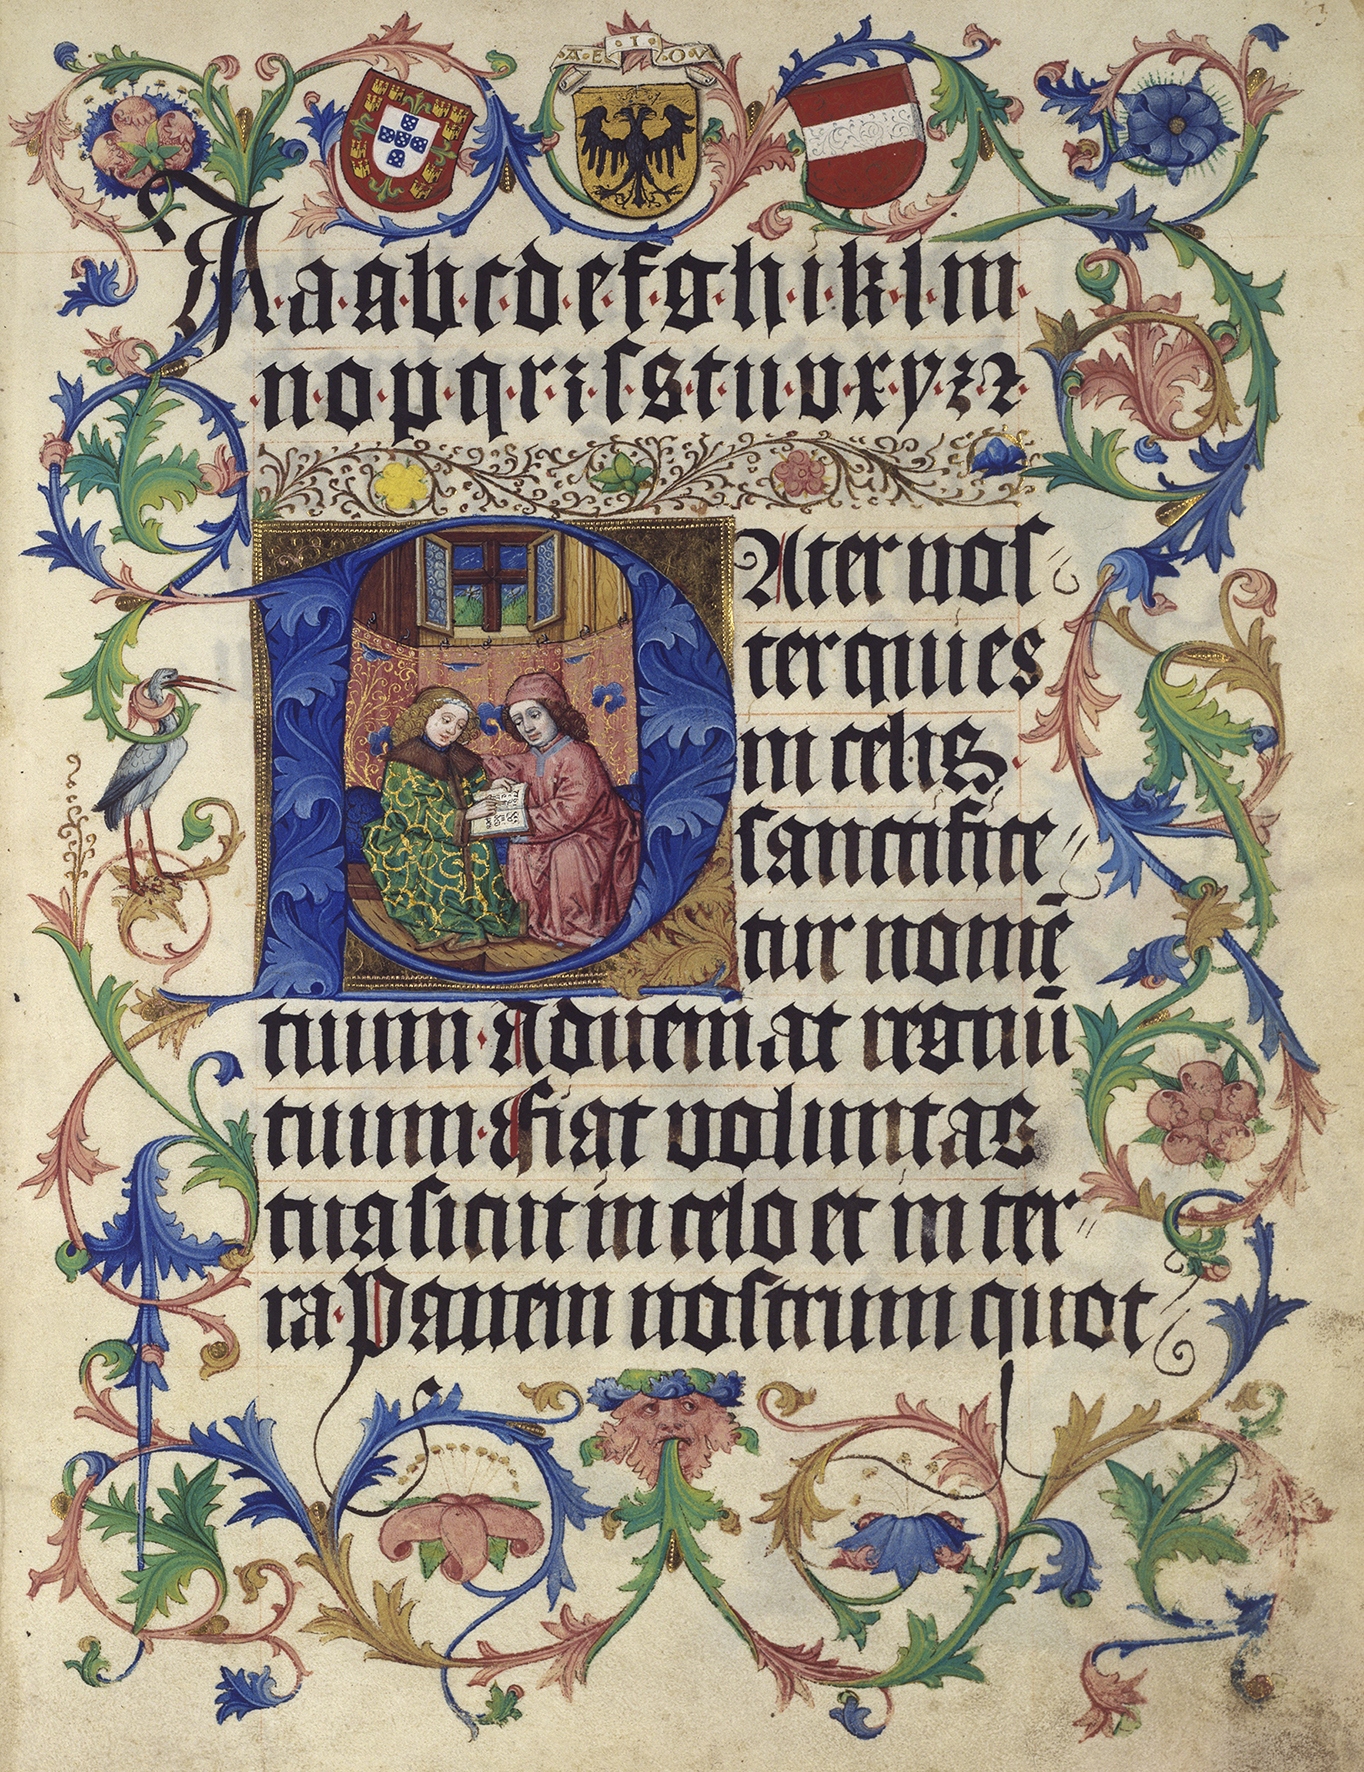 A·E·I·O·V
A a·a·b·c·d·e·f·g·h·i·k·l·m·
·n·o·p·q·r·ꝛ·ſ·s·t·u·v·x·y·z·ꝛ·
PAter noſ
ter qui es
in celis.
ſanctifice
tur nomē
tuum·Adueniat regnū
tuum·Fiat voluntas
tua ſicut in celo et in ter
ra·Panem noſtrum quot